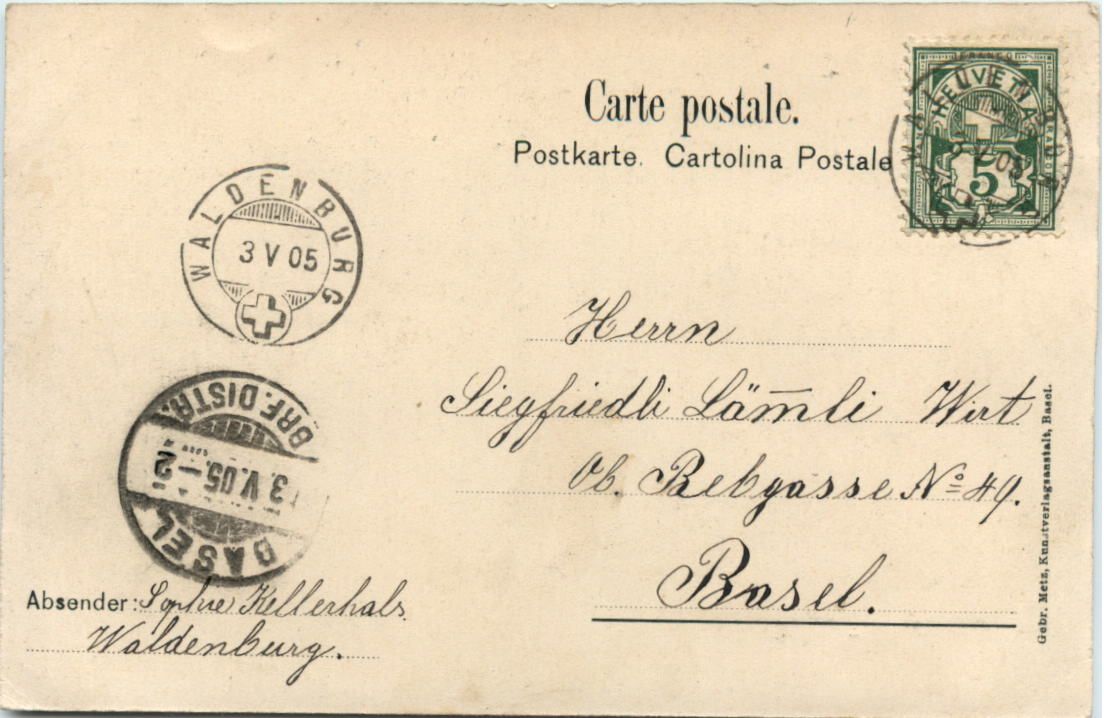 Carte postale.
Postkarte. Cartolina Postale
HELVETIA
FRANCO
5
WALDENBURG
3 V 05
Herrn
Siegfriedli Läm̅li Wirt
Ob. Rebgasse No 49.
Basel.
BRF. DISTR.
3.V.05.-2
BASEL
Absender: Sophie Kellerhals
Waldenburg.
Gebr. Metz, Kunstverlagsanstalt, Basel.